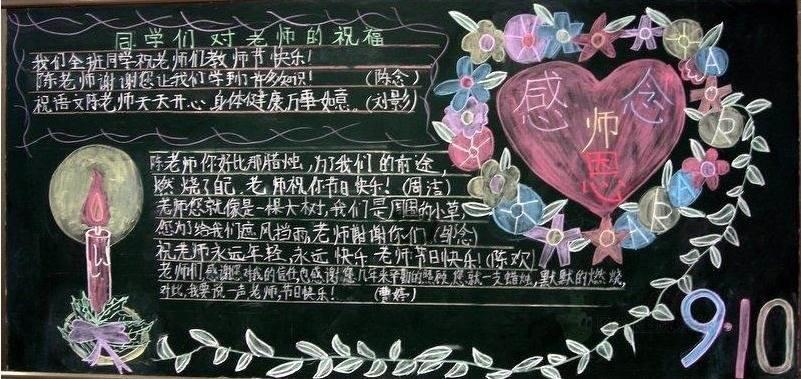 同学们对老师的祝福
我们全班同学祝老师们教师节快乐!
陈老师谢谢您让我们学到了许多知识! (陈念)
祝语文陈老师天天开心身体健康万事如意。(刘影)
陈老师你好比那腊烛,为了我们的前途,
燃烧了自己,老师祝你节日快乐!(周洁)
老师您就像是一棵大树,我们是周围的小草,
您为了给我们遮风挡雨,老师谢谢你们(邹念)
祝老师永远年轻,永远快乐 老师节日快乐!(陈欢)
老师们感谢您对我的信任也感谢您几年来辛勤的照顾,您就一支蜡烛,默默的燃烧,
对此,我要说一声老师,节日快乐! (曹婷)
感念
师
恩
9.10